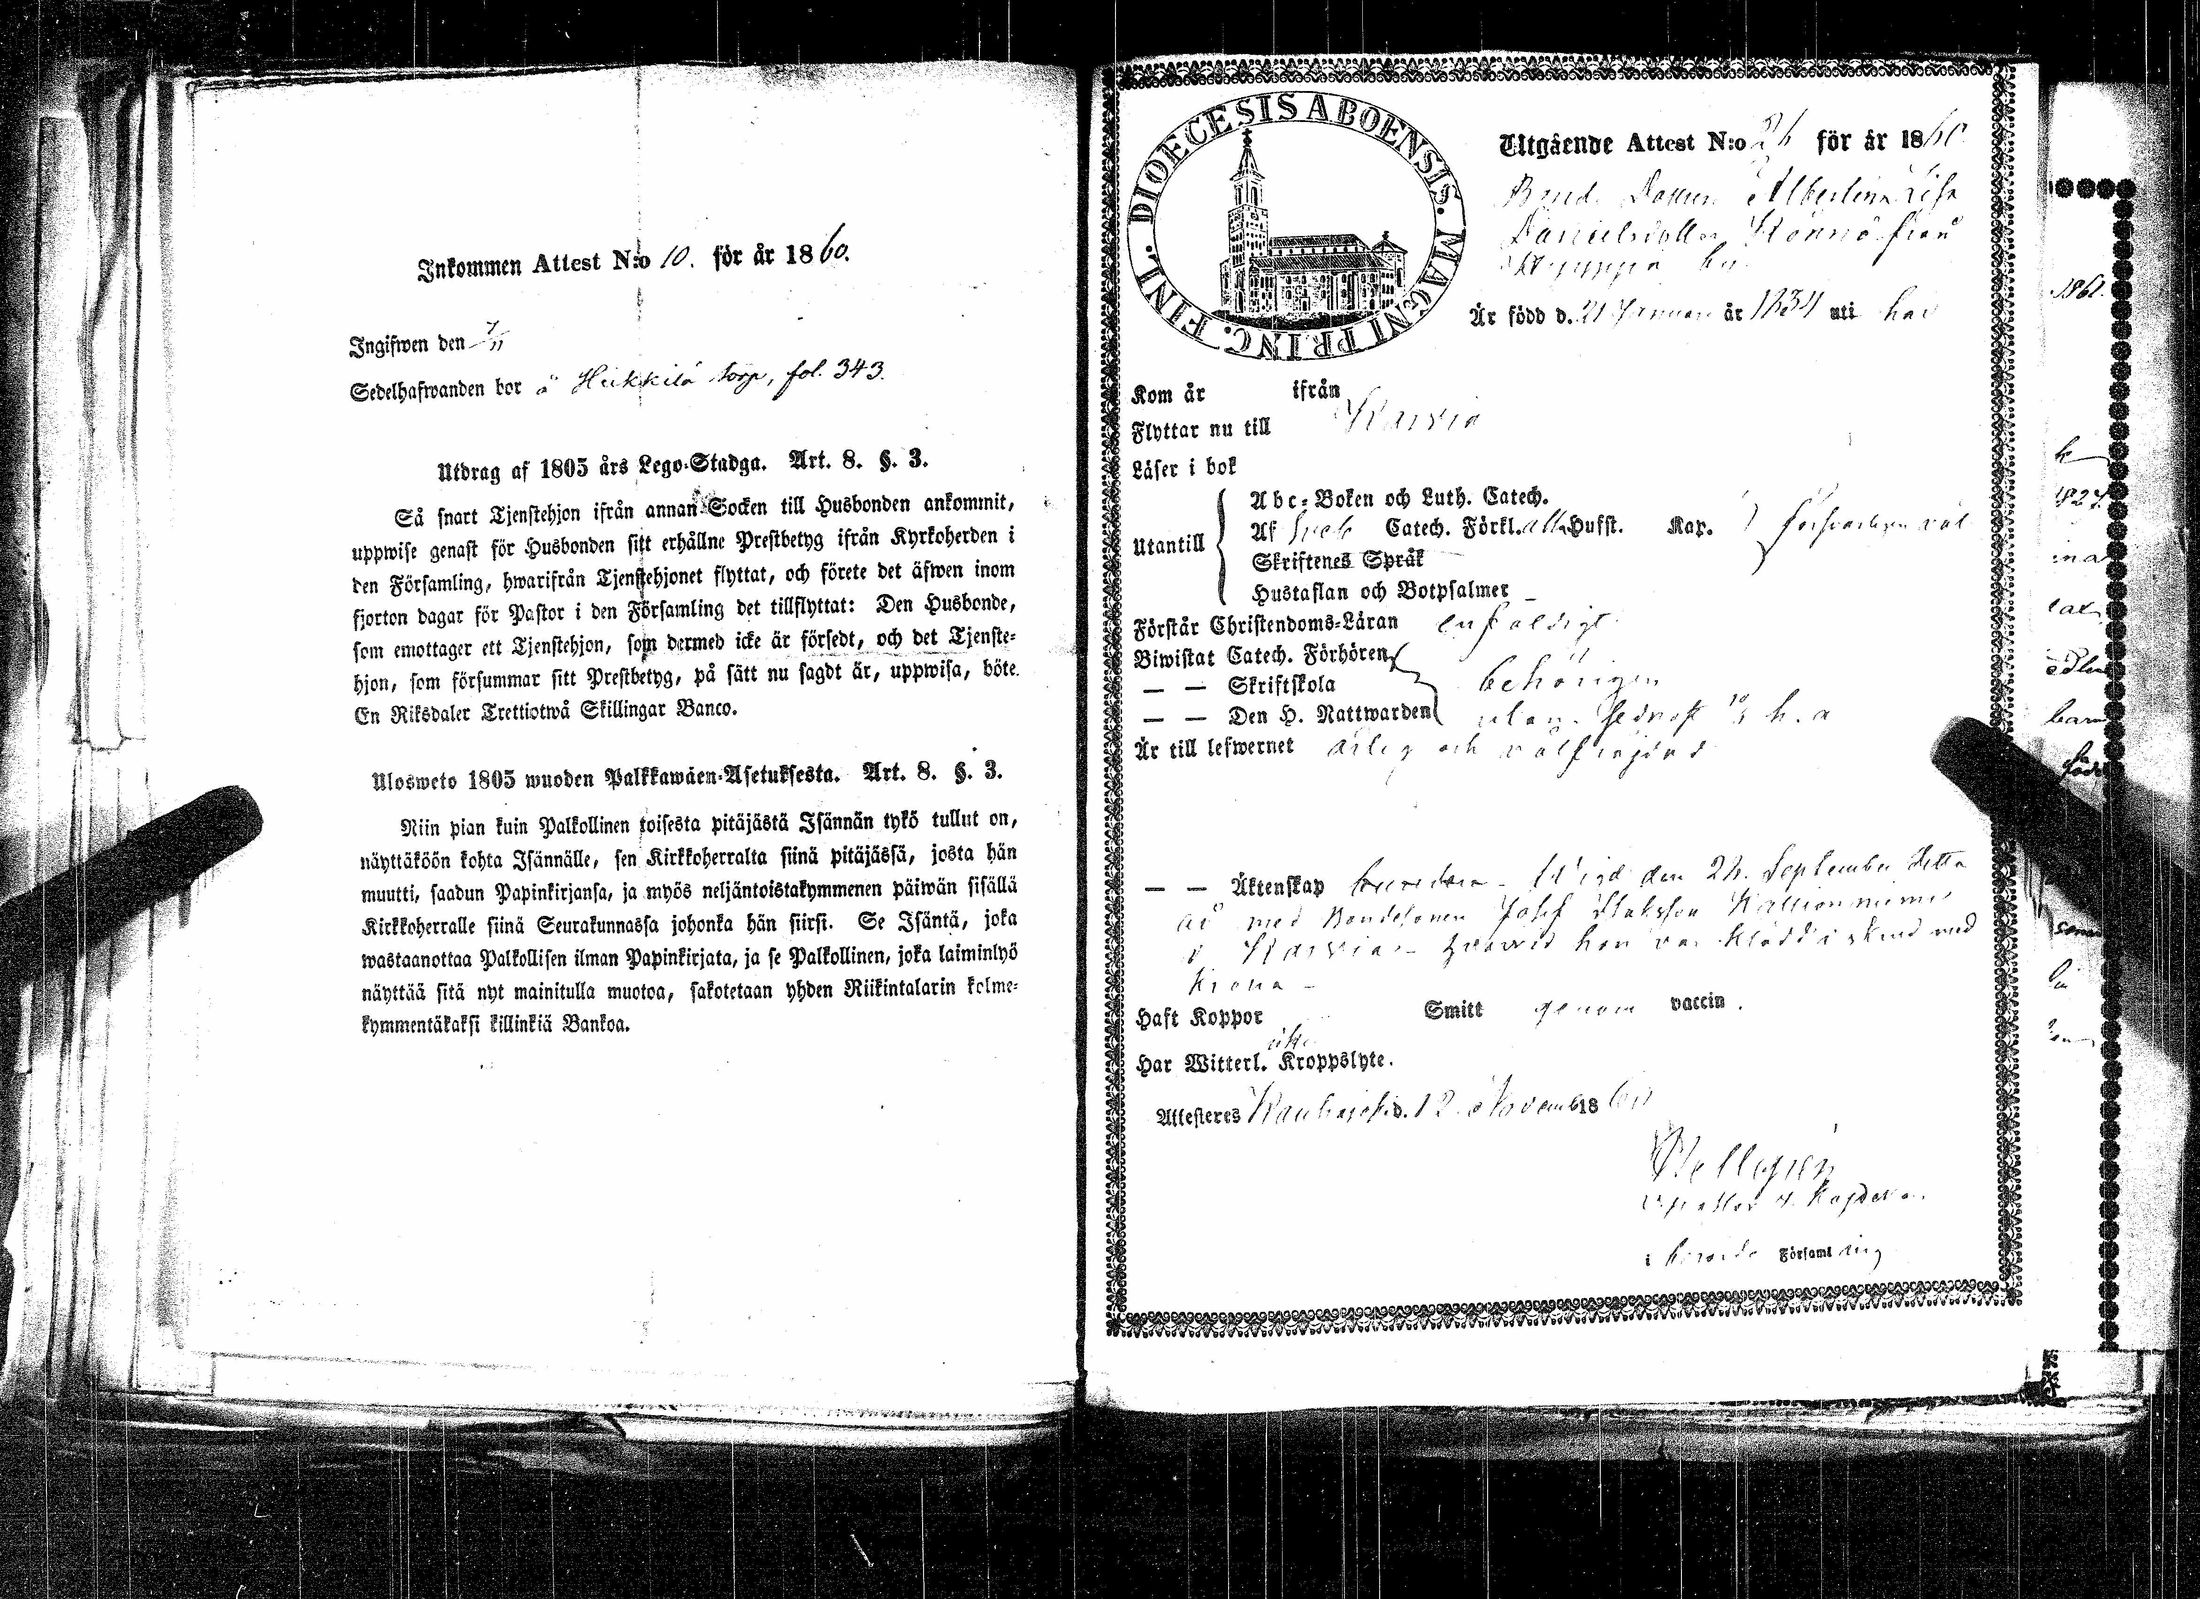 Inkommen Attest N:o 10. för år 1860.
Ingifwen den 7/11
Sedelhafwanden bor å Heikkilä torp, fol. 343.
Utdrag af 1805 års Lego-Stadga. Art. 8. §. 3.
Så snart Tjenstehjon ifrån annan Socken till Husbonden ankommit,
uppwise genast för Husbonden sitt erhållne Prestbetyg ifrån Kyrkoherden i
den Församling, hwarifrån Tjenstehjonet flyttat, och förete det äfwen inom
fjorton dagar för Pastor i den Församling det tillflyttat: Den Husbonde,
som emottager ett Tjenstehjon, som dermed icke är försedt, och det Tjenste-
hjon, som försummar sitt Prestbetyg, på sätt nu sagdt är, uppwisa, böte
En Riksdaler Trettiotwå Skillingar Banco.
Ulosweto 1805 wuoden Palkkawäen-Asetuksesta. Art. 8. §. 3.
Niin pian kuin Palkollinen toisesta pitäjästä Isännän tykö tullut on,
näyttäköön kohta Isännälle, sen Kirkkoherralta siinä pitäjässä, josta hän
muutti, saadun Papinkirjansa, ja myös neljäntoistakymmenen päiwän sisällä
Kirkkoherralle siinä Seurakunnassa johonka hän siirsi. Se Isäntä, joka
wastaanottaa Palkollisen ilman Papinkirjata, ja se Palkollinen, joka laiminlyö
näyttää sitä nyt mainitulla muotoa, sakotetaan yhden Riikintalarin kolme-
kymmentäkaksi killinkiä Bankoa.
DIOECESIS ABOENSIS. MAGNI PRINC. FINL.
Utgående Attest N:o 26 för år 1860
Albertina Lisa
Danielsdotter från
by
Är född d. 21 Januari år 1834 uti här
Kom år ifrån
Flyttar nu till Karvia
Läser i bok
Utantill
Abc-Boken och Luth. Catech.
Af Sveb Catech. Förkl. alla Hufst. Kap. försvarligen väl
Skriftenes Språk
Hustaflan och Botpsalmer
Förstår Christendoms-Läran enfaldigt
Biwistat Catech. Förhören
— — Skriftskola behörigen
— — Den H. Nattwarden h. a
Är till lefwernet ärlig och välfrejdad
— — Äktenskap Wigd den 24. September detta
år med Bondesonen Josef Isaksson
i Karvia - hvarvid hon var klädd i skrud med
krona -
Haft Koppor Smitt genom vaccin.
Har Witterl. icke Kroppslyte.
Attesteres Kauhajoki d. 12 November 1860
i berörde Församling